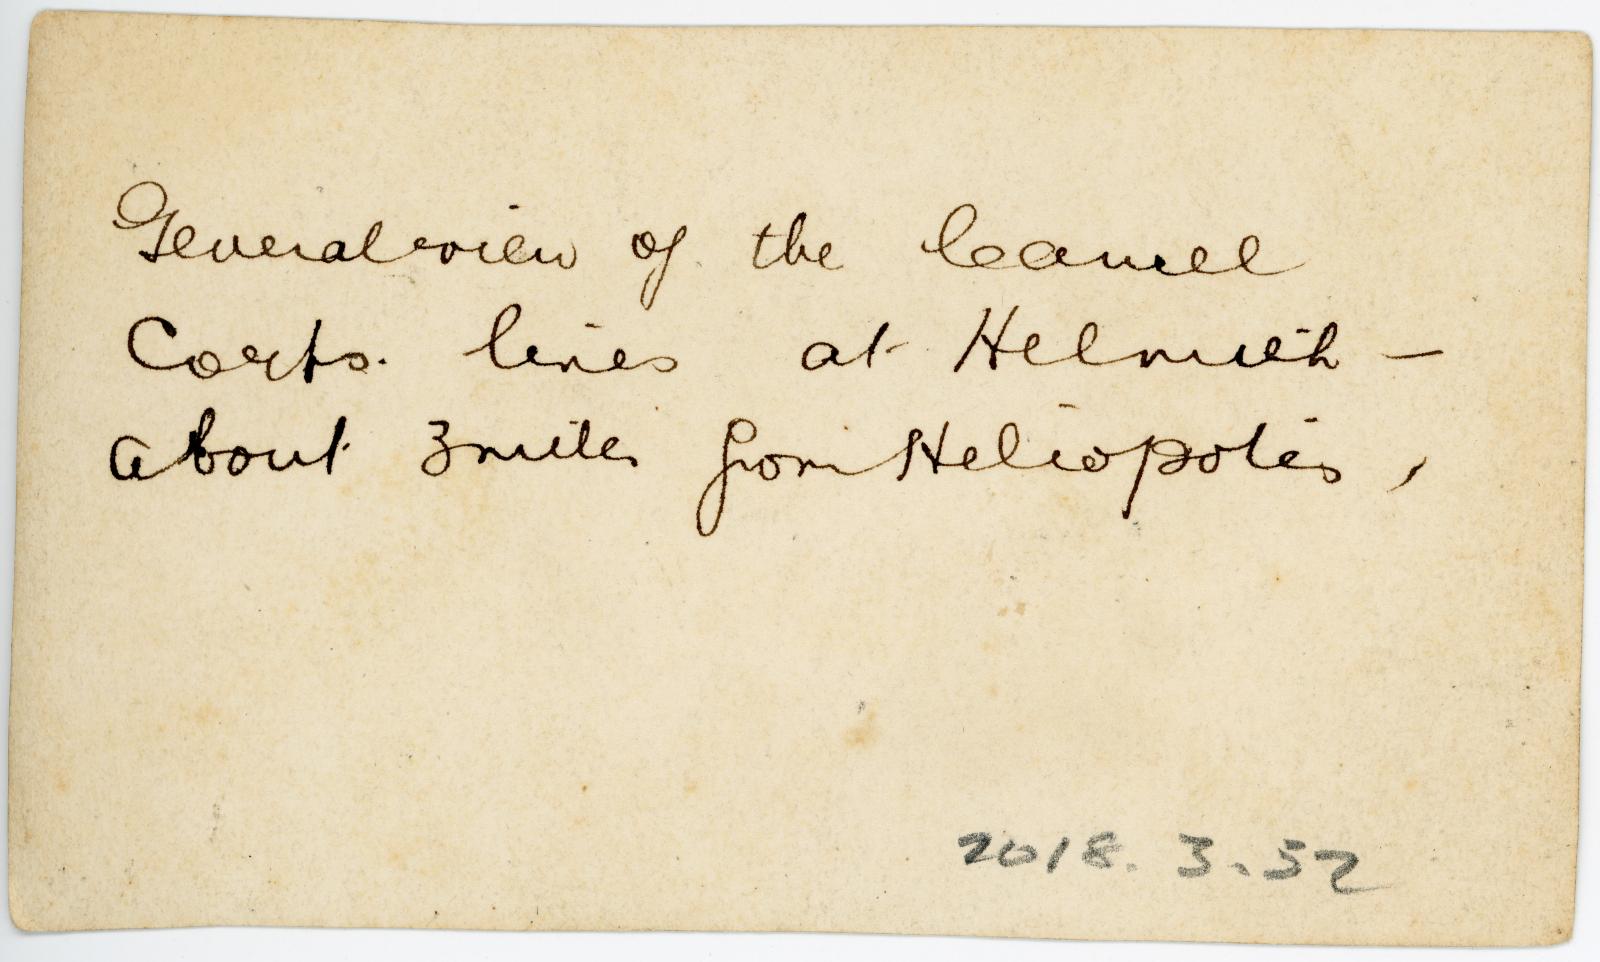 General view of the Camel
Corps. lines at Helmieh –
about 3 miles from Heliopolis,
2018.3.52